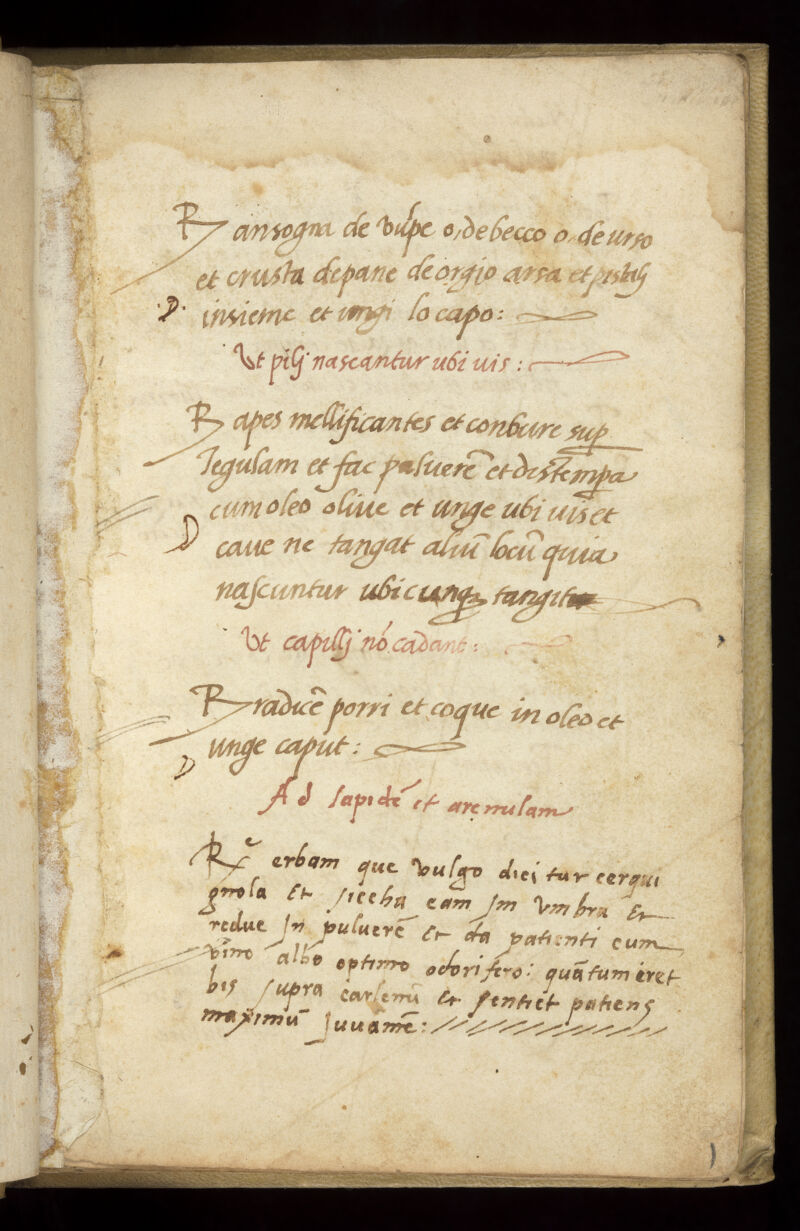 R ansogna de vulpe o, de becco o, de urso
et crusta de pane de orgio arsa et pistalj
.D. insieme et ungi lo capo:
Ut pilj nascantur ubi uis:
R apes mellificantes et conbure sup
Tegulam et fac puluerē et distempa
cum oleo oliue et unge ubi uis et
D caue ne tangat aliū locū quia
nascuntur ubicunq tangitur
Ut capillj nō cadant:
R radicē porri et coque in oleo et
D unge caput:
Ad lapidē et arenulam
Rᶜ erbam que vulgo dicitur cerqui
gnola Et siccha eam Jm Vmbra Et
redue Jn puluerē Et da patienti cum
vino albo optimo odorifero: quātum iret
bis supra carlenū Et sentiet patiens
maximū Juuamē:
)